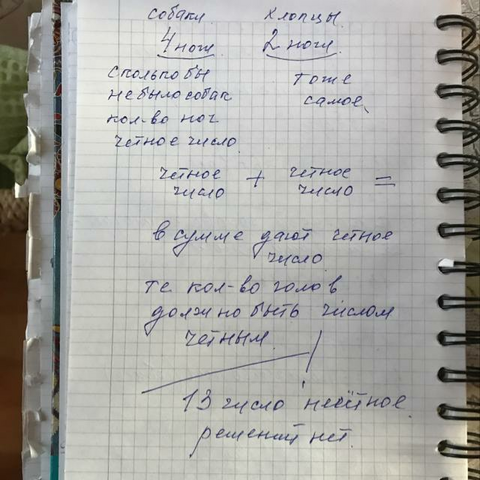 собаки хлопцы
4 ног 2 ноги
сколько бы тоже
не было собак самое
кол-во ног
четное число
четное + четное =
число число
в сумме дают четное
число
те кол-во голов
должно быть числом
четным
13 число несётное
решений нет.